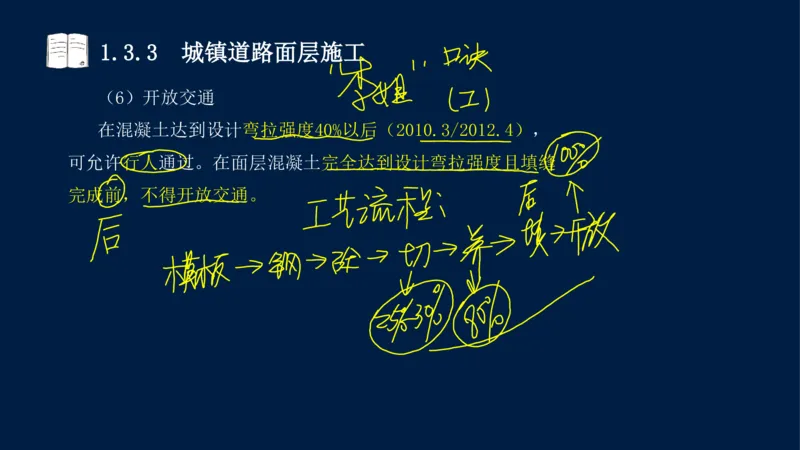 1.3.3 城镇道路面层施工
"李姐" 口诀
(6)开放交通
(工)
在混凝土达到设计弯拉强度40%以后(2010.3/2012.4),
可允许行人通过。在面层混凝土完全达到设计弯拉强度且填缝
100%
完成前,不得开放交通。
后
后
工艺流程:
模板→钢→砼→切→养→填→开放
25%~30%
80%